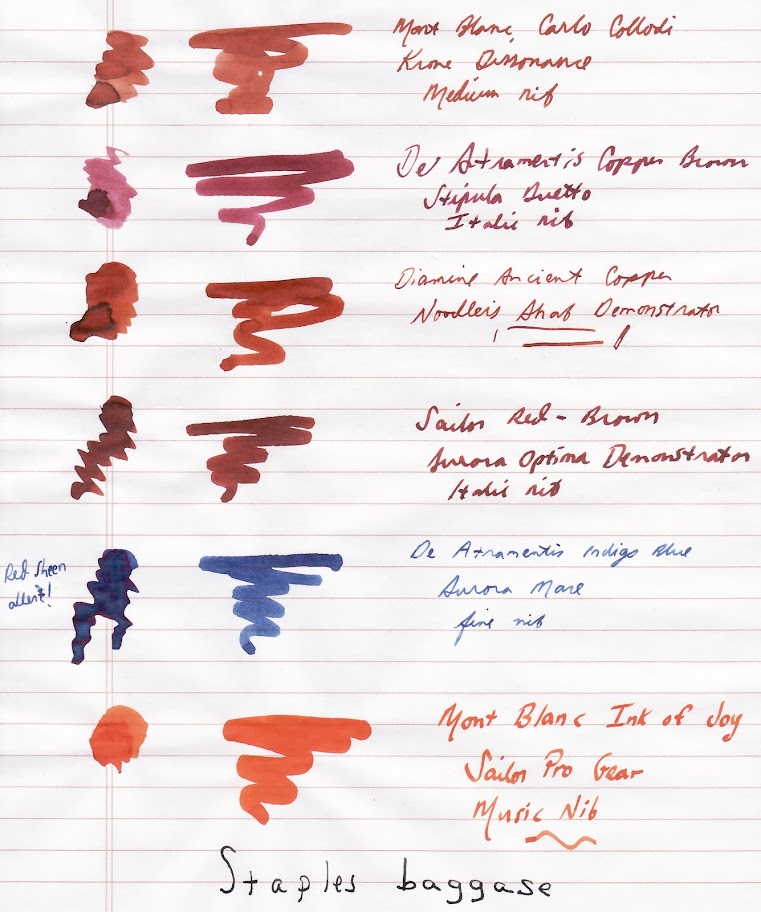 Mont Blanc, Carlo Collodi
Krone Dissonance
Medium nib
De Atramentis Copper Brown
Stipula Duetto
Italic nib
Diamine Ancient Copper
Noodler's Ahab Demonstrator
Sailor Red-Brown
Aurora Optima Demonstrator
Italic nib
Red sheen
alert!
De Atramentis Indigo Blue
Aurora Mare
fine nib
Mont Blanc Ink of Joy
Sailor Pro Gear
Music Nib
Staples baggase